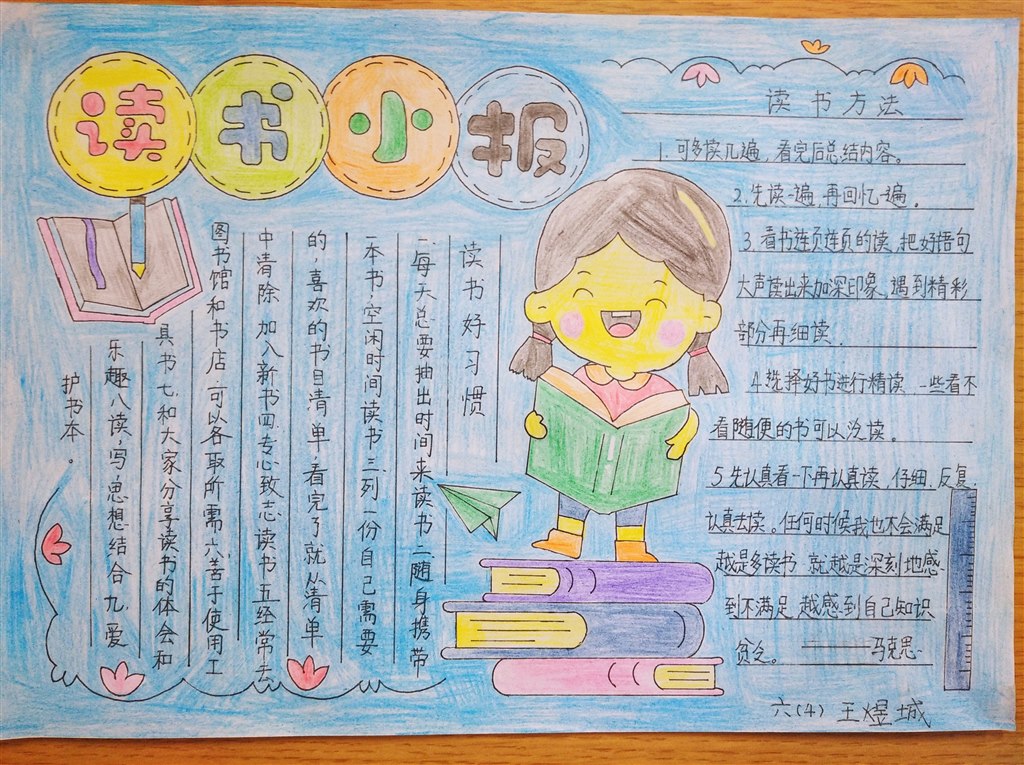 读书小报
读书好习惯
一、每天总要抽出时间来读书 二、随身携带
一本书,空闲时间读书 三、列一份自己需要
的,喜欢的书目清单,看完了就从清单
中清除 加入新书 四、专心致志读书 五经常去
图书馆和书店 可以各取所需 六、苦于使用工
具书 七、和大家分享读书的体会和
乐趣 八读,写,思想结合 九、爱
护书本。
读书方法
1.可多读几遍,看完后总结内容。
2.先读一遍,再回忆一遍.
3.看书连页连页的读,把好语句
大声读出来加深印象,遇到精彩
部分再细读.
4.选择好书进行精读,一些看不
看随便的书可以泛读。
5.先认真看一下再认真读,仔细,反复
认真去读。任何时候我也不会满足
越是多读书 就越是深刻地感
到不满足,越感到自己知识
贫乏。——马克思
六(4) 王煜城